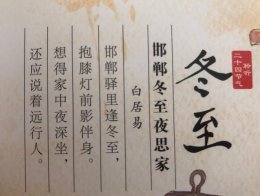 冬至
聆听
二十四节气
邯郸冬至夜思家
白居易
邯郸驿里逢冬至，
抱膝灯前影伴身。
想得家中夜深坐，
还应说着远行人。